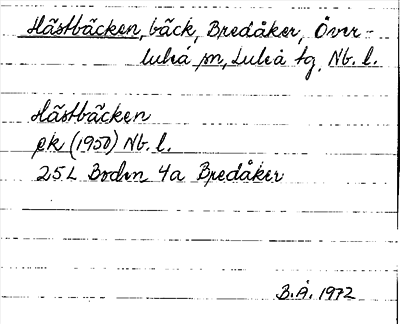 Hästbäcken, bäck, Bredåker, Över-
luleå sn, Luleå tg. Nb. l.
Hästbäcken
ek (1950) Nb. l.
25L Boden 4a Bredåker
B.Å. 1972